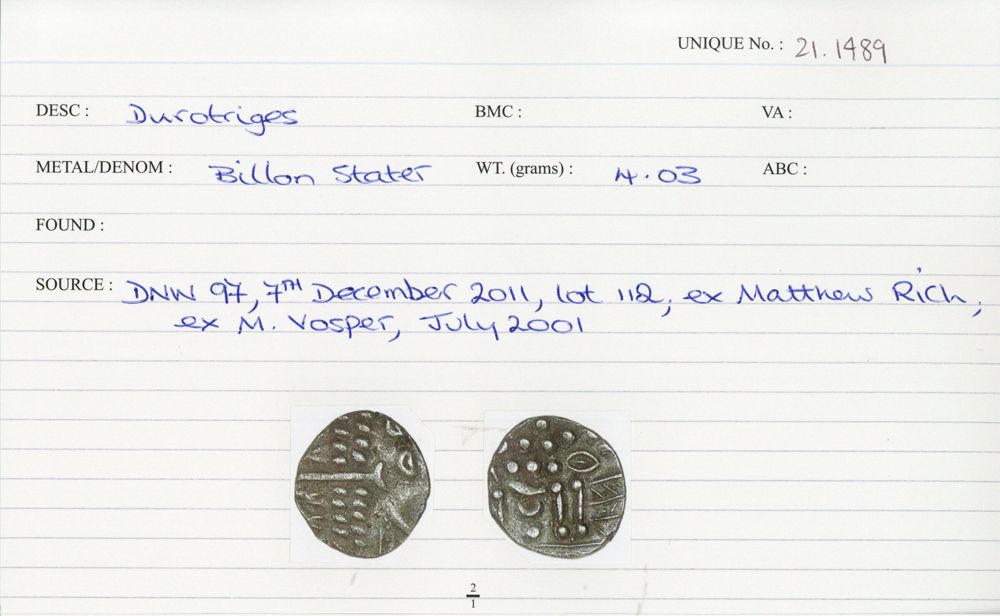 UNIQUE No. : 21.1489
DESC : Durotriges BMC : VA :
METAL/DENOM : Billon Stater WT. (grams) : 4.03 ABC :
FOUND :
SOURCE : DNW 97, 7TH December 2011, lot 112, ex Matthew Rich,
ex M. Vosper, July 2001
2
1